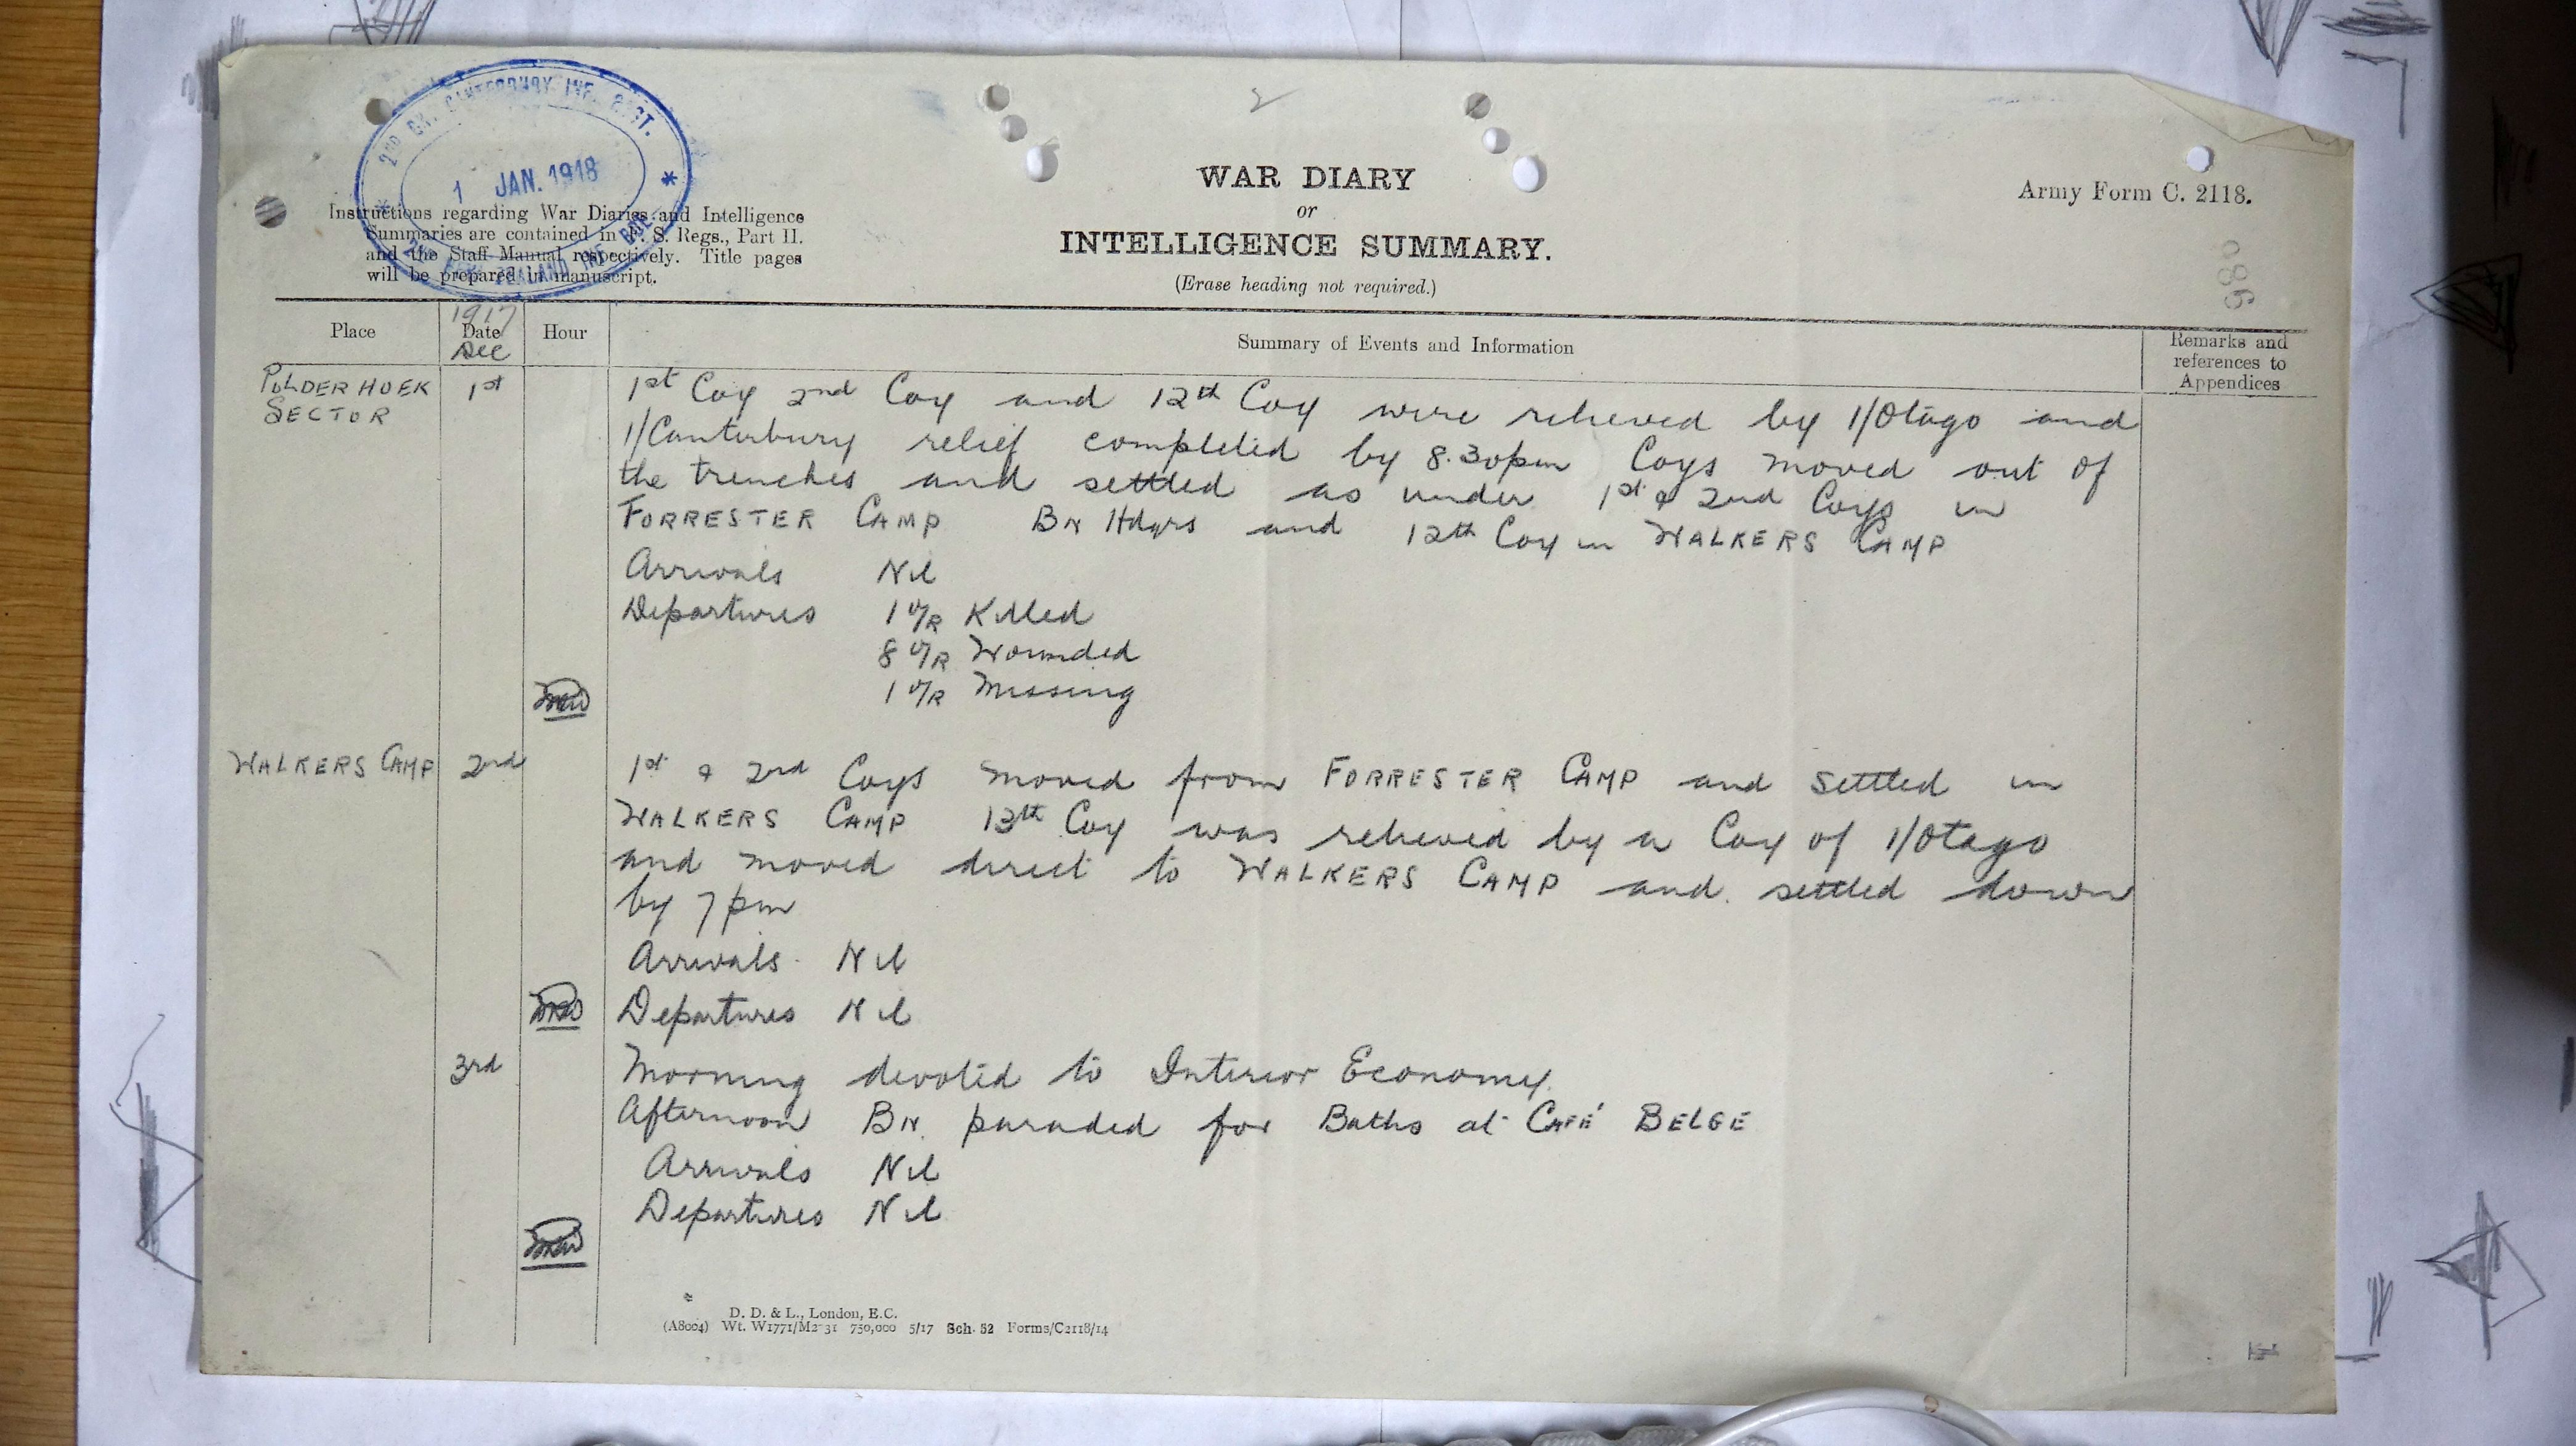 2ND BN. CANTERBURY INF. REGT.
1 JAN. 1918
2ND NEW ZEALAND INF. BDE.
2
WAR DIARY
or
INTELLIGENCE SUMMARY.
(Erase heading not required.)
Army Form C. 2118.
Instructions regarding War Diaries and Intelligence
Summaries are contained in F. S. Regs., Part II.
and the Staff Manual respectively. Title pages
will be prepared in manuscript.
980
Place
1917
Date
Dec
Hour
Summary of Events and Information
Remarks and
references to
Appendices
POLDERHOEK
SECTOR
1st
1st Coy 2nd Coy and 12th Coy were relieved by 1/Otago and
1/Canterbury relief completed by 8.30pm Coys moved out of
the trenches and settled as under 1st & 2nd Coys in
FORRESTER CAMP BN Hdqrs and 12th Coy in WALKERS CAMP
Arrivals Nil
Departures 1 O/R Killed
8 O/R Wounded
1 O/R Missing
WALKERS CAMP 2nd
1st & 2nd Coys moved from FORRESTER CAMP and settled in
WALKERS CAMP 13th Coy was relieved by a Coy of 1/Otago
and moved direct to WALKERS CAMP and settled down
by 7 pm
Arrivals Nil
Departures Nil
3rd
Morning devoted to Interior Economy.
Afternoon BN. paraded for Baths at CAFÉ BELGE
Arrivals Nil
Departures Nil
D. D. & L., London, E.C.
(A8004) Wt. W1771/M2-31 750,000 5/17 Sch. 52 Forms/C2118/14